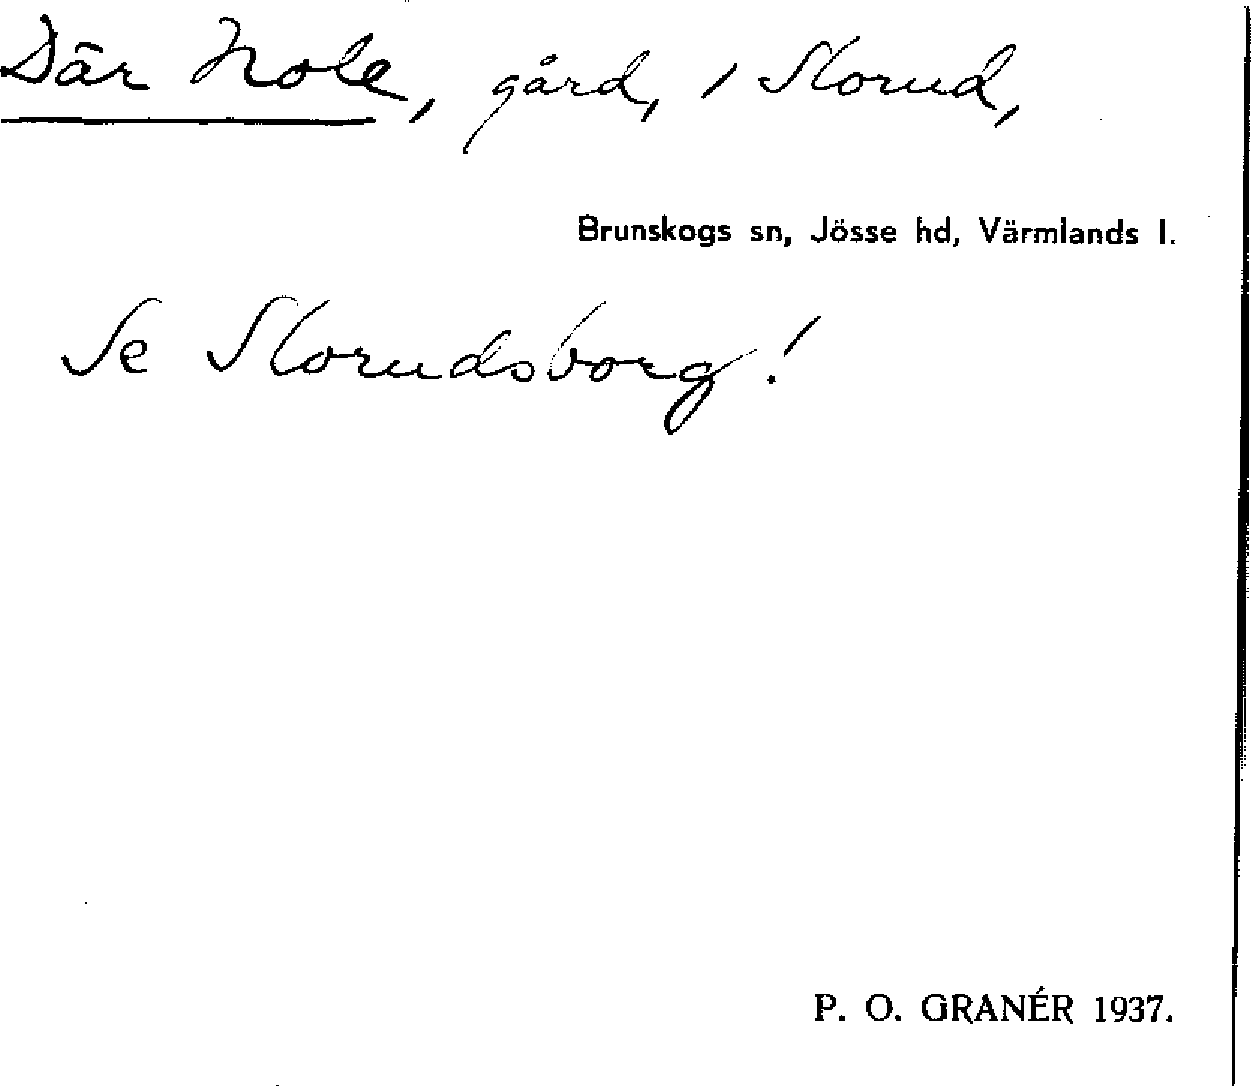 Där Nole, gård, i Slorud,
Brunskogs sn, Jösse hd, Värmlands l.
Se Slorudsborg!
P. O. GRANÉR 1937.